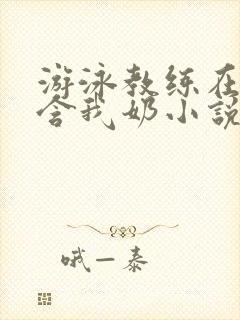 游泳教练在
含我奶小说
哦一泰